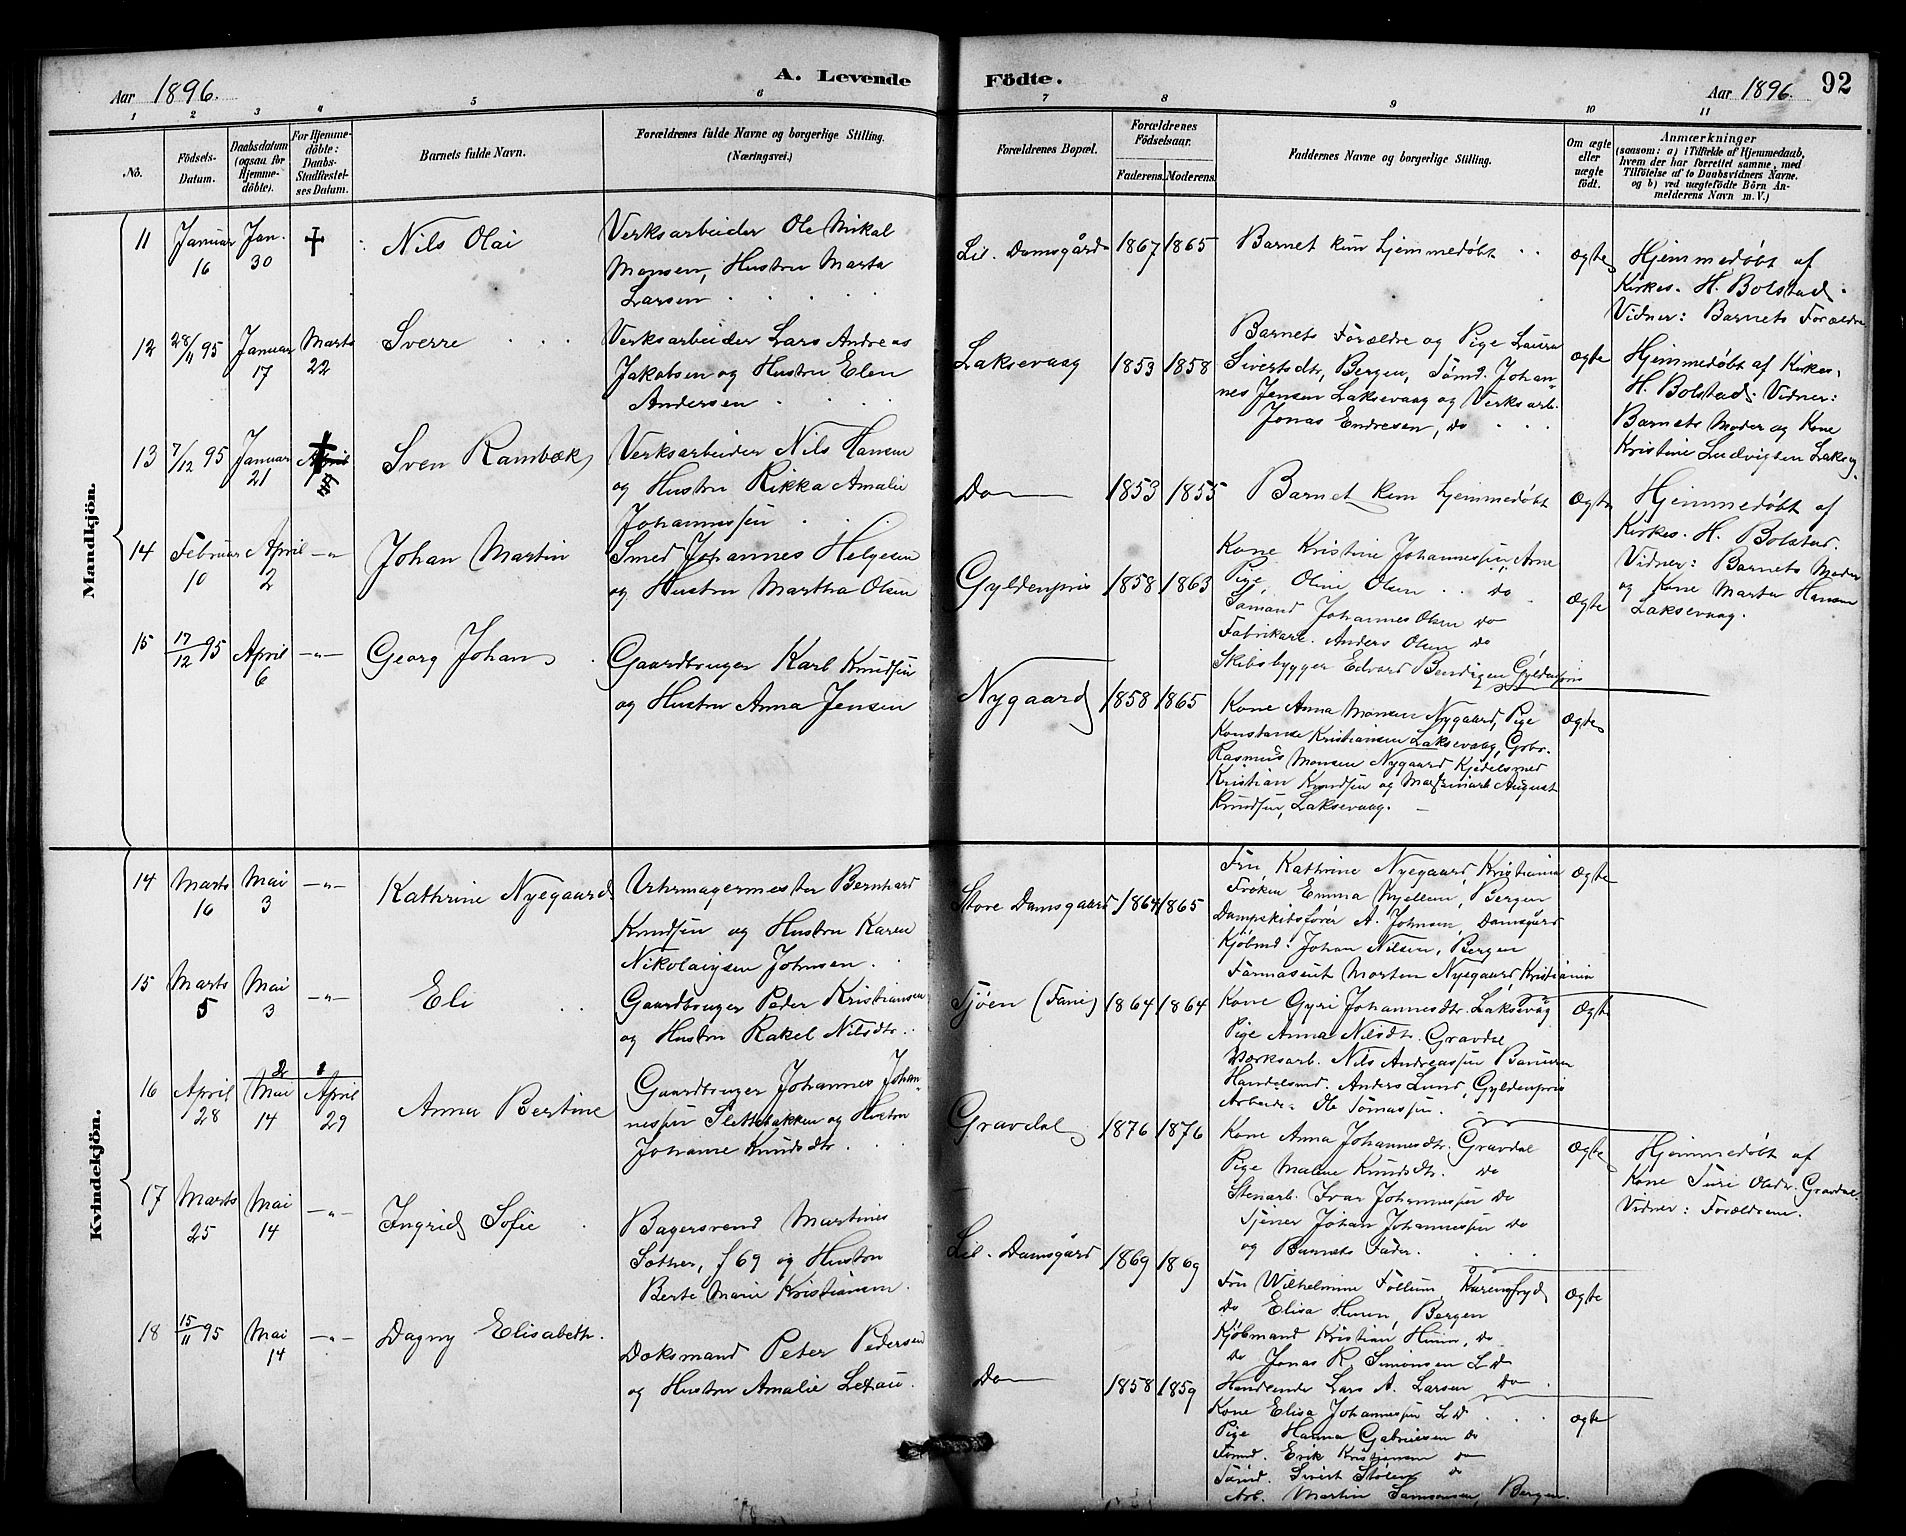 Aar 1896.
A. Levende Födte.
Aar 1896. 92
1 2 3 4 5 6 7 8 9 10 11
No.
Födsels-Datum.
Daabsdatum (ogsaa for Hjemmedöbte).
For Hjemmedöbte: Daabs-Stadfæstelses Datum.
Barnets fulde Navn.
Forældrenes fulde Navne og borgerlige Stilling. (Næringsvei.)
Forældrenes Bopæl.
Forældrenes Födselsaar.
Faderens. Moderens.
Faddernes Navne og borgerlige Stilling.
Om ægte eller uægte födt.
Anmærkninger
(saasom: a) i Tilfælde af Hjemmedaab,
hvem der har forrettet samme, med
Tilföielse af to Daabsvidners Navne.
og b) ved uægtefödte Börn Anmelderens Navn m. V.)
Mandkjön.
11 Januar 16 Jan. 30 † Nils Olai
Verksarbeider Ole Mikal
Monsen, Hustru Marta
Larsen
Lil. Damsgård 1867 1865
Barnet kun hjemmedøbt
Ægte
Hjemmedøbt af
Kirkes. H. Bolstad.
Vidner: Barnets Forældre
12 28/11 95 Januar 17 Marts 22 Sverre
Verksarbeider Lars Andreas
Jakobsen og Hustru Elen
Andersen
Laksevaag 1853 1858
Barnets Forældre og Pige Laura
Sivertsdtr, Bergen, Tømd. Johan-
nes Jensen Laksevaag og Verksarb.
Jonas Endresen, do
Ægte
Hjemmedøbt af Kirkes.
H. Bolstad. Vidner:
Barnets Moder og Kone
Kristine Ludvigsen Laksvg.
13 7/12 95 Januar 21 † April Sven Rambæk
Verksarbeider Nils Hansen
og Hustru Rikka Amalie
Johannessen
Do 1853 1855
Barnet kun hjemmedøbt
Ægte
Hjemmedøbt af
Kirkes. H. Bolstad.
Vidner: Barnets Moder
og Kone Marta Hansen
Laksevaag.
14 Februar 10 April 2 -"- Johan Martin
Smed Johannes Helgesen
og Hustru Martha Olsen
Gyldenpris 1858 1863
Kone Kristine Johannessen, Arne
Pige Oline Olsen do
Sømand Johannes Olsen do
Fabrikarb. Anders Olsen do
Skibsbygger Edvard Bendigen Gyldenpris
Ægte
15 17/12 95 April 6 -"- Georg Johan
Gaardbruger Karl Knudsen
og Hustru Anna Jensen
Nygaard 1858 1865
Kone Anna Monsen Nygaard, Pige
Konstanse Kristiansen Laksevaag, Gbr.
Rasmus Monsen Nygaard Kjedelsmed
Kristian Knudsen og Maskinarb August
Knudsen, Laksevaag.
Ægte
Kvindekjön.
14 Marts 16 Mai 3 -"- Kathrine Nyegaard
Uhrmagermester Bernhard
Knudsen og Hustru Karen
Nikolaysen Johnsen
Store Damsgaard 1864 1865
Fru Kathrine Nyegaard, Kristiania
Frøken Emma Kjellem, Bergen
Dampskibsfører A. Johnsen, Damsgård
Kjøbmd. Johan Nilsen, Bergen
Farmaseut Morten Nyegaard Kristiania
Ægte
15 Marts 5 Mai 3 -"- Eli
Gaardbruger Peder Kristiansen
og Hustru Rakel Nilsdtr.
Tjøen (Fane) 1864 1864
Kone Gyri Johannesdtr. Laksevåg
Pige Anna Nilsdtr. Gravdal
Verksarb. Nils Andreassen
Handelsmd. Anders Lund, Gyldenpris
Arbeider Ole Tomassen.
Ægte
16 April 28 2 Mai 14 1 April 29 Anna Bertine
Gaardbruger Johannes Johan-
nessen Slettebakken og Hustru
Johanne Knudsdtr.
Gravdal 1876 1876
Kone Anna Johannesdtr. Gravdal
Pige Malene Knudsdtr. do
Stenarb. Ivar Johannessen do
Tjener Johan Johannessen do
og Barnets Fader.
Ægte
Hjemmedøbt af
Kone Turi Olsdr. Gravdal.
Vidner: Forældrene.
17 Marts 25 Mai 14 -"- Ingrid Sofie
Bagersvend Martines
Søther, f 69 og Hustru
Berte Marie Kristiansen.
Lil. Damsgård 1869 1869
Fru Wilhelmine Follum, Karensfryd
Do Elisa Huun, Bergen
Kjøbmand Kristian Huun, do
Do Jonas R. Simonsen L D
Handlende Lars A. Larsen Do
Ægte
18 15/11 95 Mai 14 -"- Dagny Elisabeth.
Doksmand Peter Pedersen
og Hustru Amalie Lexau.
Do 1858 1859
Kone Elisa Johannessen L D
Pige Hanna Gabrielsen do
Tømd. Erik Kristiansen do
Tømd. Sivert Stölen do
Arb. Martin Samsonsen, Bergen.
Ægte